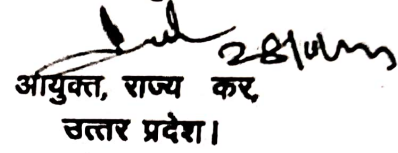 आयुक्त, राज्य कर,
उत्तर प्रदेश।